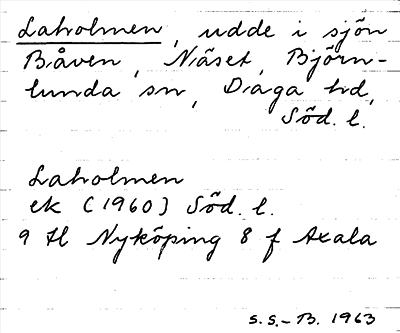 Laholmen, udde i sjön
Båven, Näset, Björn-
lunda sn, Daga hd,
Söd. l.
Laholmen
ek (1960) Söd. l.
9 H Nyköping 8 f Axala
S.S.-B. 1963